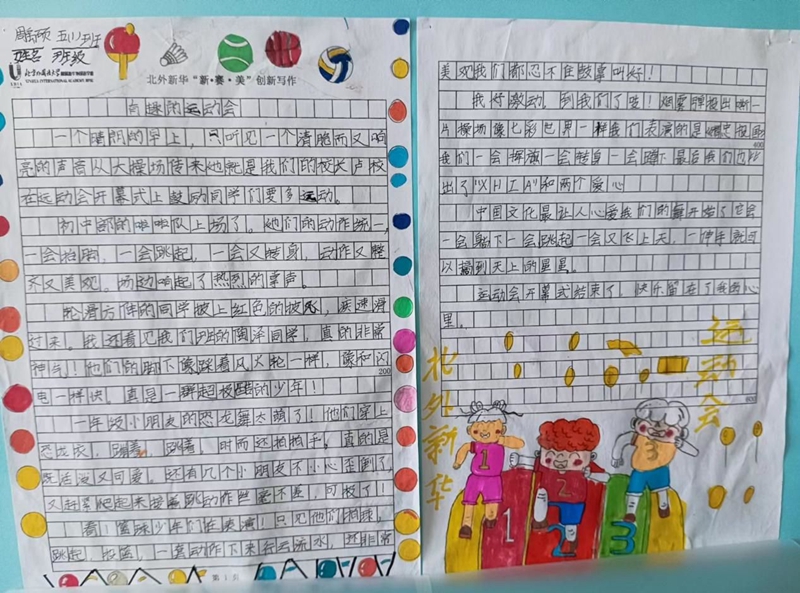 五(1)班
姓名 班级
北外新华“新·赛·美”创新写作
有趣的运动会
一个晴朗的早上，只听见一个清脆而又响
亮的声音从大操场传来他就是我们的校长卢校
在运动会开幕式上鼓励同学们要多运动。
初中部的啦啦队上场了。她们的动作统一，
一会抬脚，一会跳起，一会又转身，动作又整
齐又美观。场边响起了热烈的掌声。
轮滑方阵的同学披上红色的披风，疾速滑
过来。我还看见我们班的同学，真的非常
神气！他们的脚下像踩着风火轮一样，像和闪
200
电一样快。真是一群超极酷的少年！
一年级小朋友的恐龙舞太萌了！他们穿上
恐龙衣，蹦着，跳着，时而还拍拍手。真的是
既活泼又可爱。还有几个小朋友不小心歪倒了，
又赶紧爬起来接着跳动作丝毫不差，可极了！
看！篮球少年们在表演！只见他们拍球，
跳起，一套动作下来行云流水，还非常
第1页
美观我们都忍不住鼓掌叫好！
我好激动。到我们了哎！烟雾弹放出来一
片操场像七彩世界一样我们表演的是
400
我们一会挥旗一会转身一会蹲下最后我们也以
出了“XHIA”和两个爱心
中国文化最让人心爱我们的舞开始了它会
一会躺下一会跳起一会又飞上天，一伸手就可
以摘到天上的星星。
运动会开幕式结束了！快乐留在了我的心
里。
600
北外新华
运动会
1
2
3
1
2
3